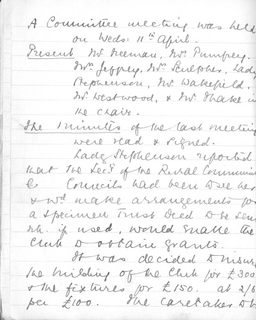 A Committee meeting was held
on Weds 11th April.
Present Mr Neeman, Mr Pumfrey,
Mrs Jeffrey, Mr Sculpher, Lady
Stephenson, Mr Wakefield,
Mr Westwood, & Mr Thake in
the chair.
The minutes of the last meeting
were read & signed.
Lady Stephenson reported
that the Secy of the Rural Communi
Councils had been to see her
& wd make arrangements for
a specimen Trust Deed to be sen
wh. if used, would enable the
Club to obtain grants.
It was decided to insur
the building of the Club for £300
& the fixtures for £150. at 2/6
per £100. The Caretaker to b